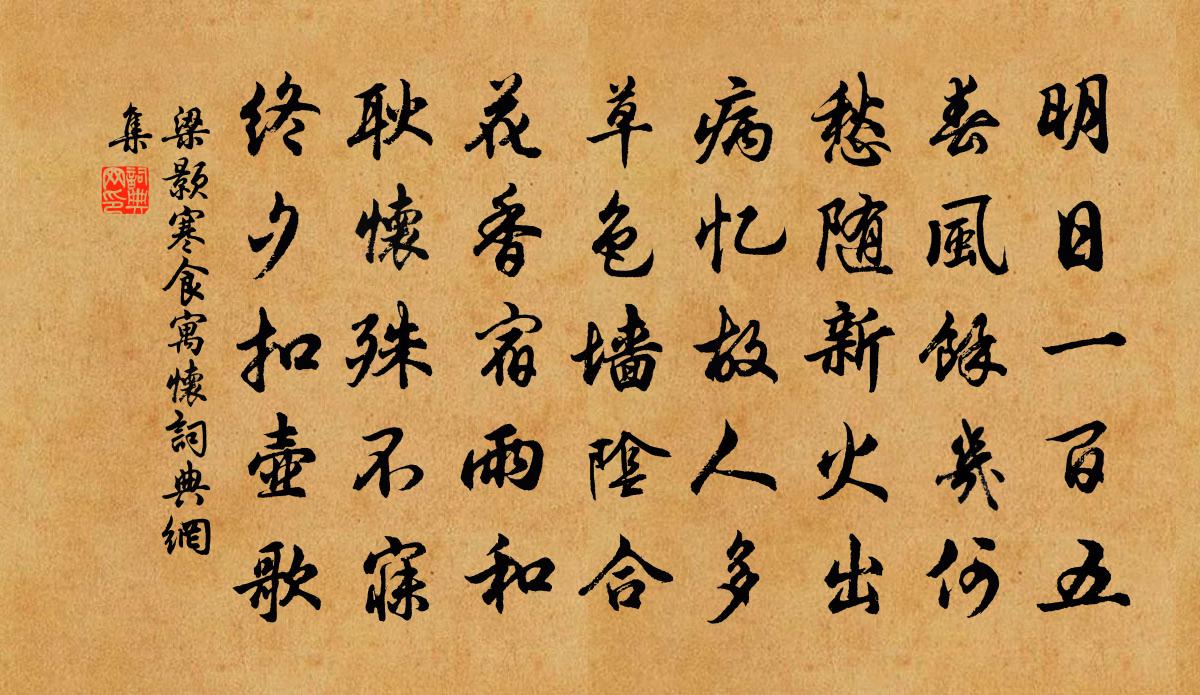 明日一百五
春風餘幾何
愁随新火出
病忆故人多
草色墙陰合
花香宿雨和
耿懷殊不寐
终夕扣壺歌
梁顥寒食寓懷詞典網
集
詞典网印